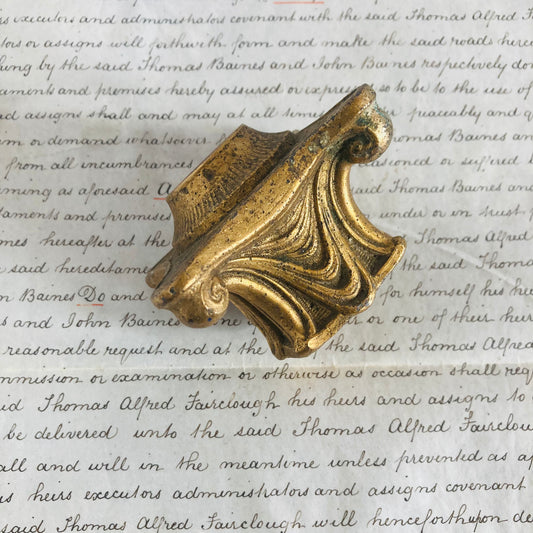 executors and administrators covenant with the said Thomas Alfred Fair
tors or assigns will forthwith form and make the said roads hereo
hing by the said Thomas Baines and John Baines respectively do
aments and premises hereby assured or expres so to be to the use of
d assigns shall and may at all times peaceably and q
m or demand whatsoever Thomas Baines an
from all incumbrances asioned or suffered
ming as aforesaid A Thomas Baines and
taments and premises under or in trust
mes hereafter at the Thomas Alfred
said hereditame the said Thomas
Baines Do and for himself his hei
s and John Baines or one of their heirs
reasonable request and at the the said Thomas Alfred
mmission or examination or otherwise as occasion shall req
id Thomas Alfred Fairclough his heirs and assigns to
be delivered unto the said Thomas Alfred Fairclou
all and will in the meantime unless prevented as a
is heirs executors administrators and assigns covenant
said Thomas Alfred Fairclough will henceforth upon de